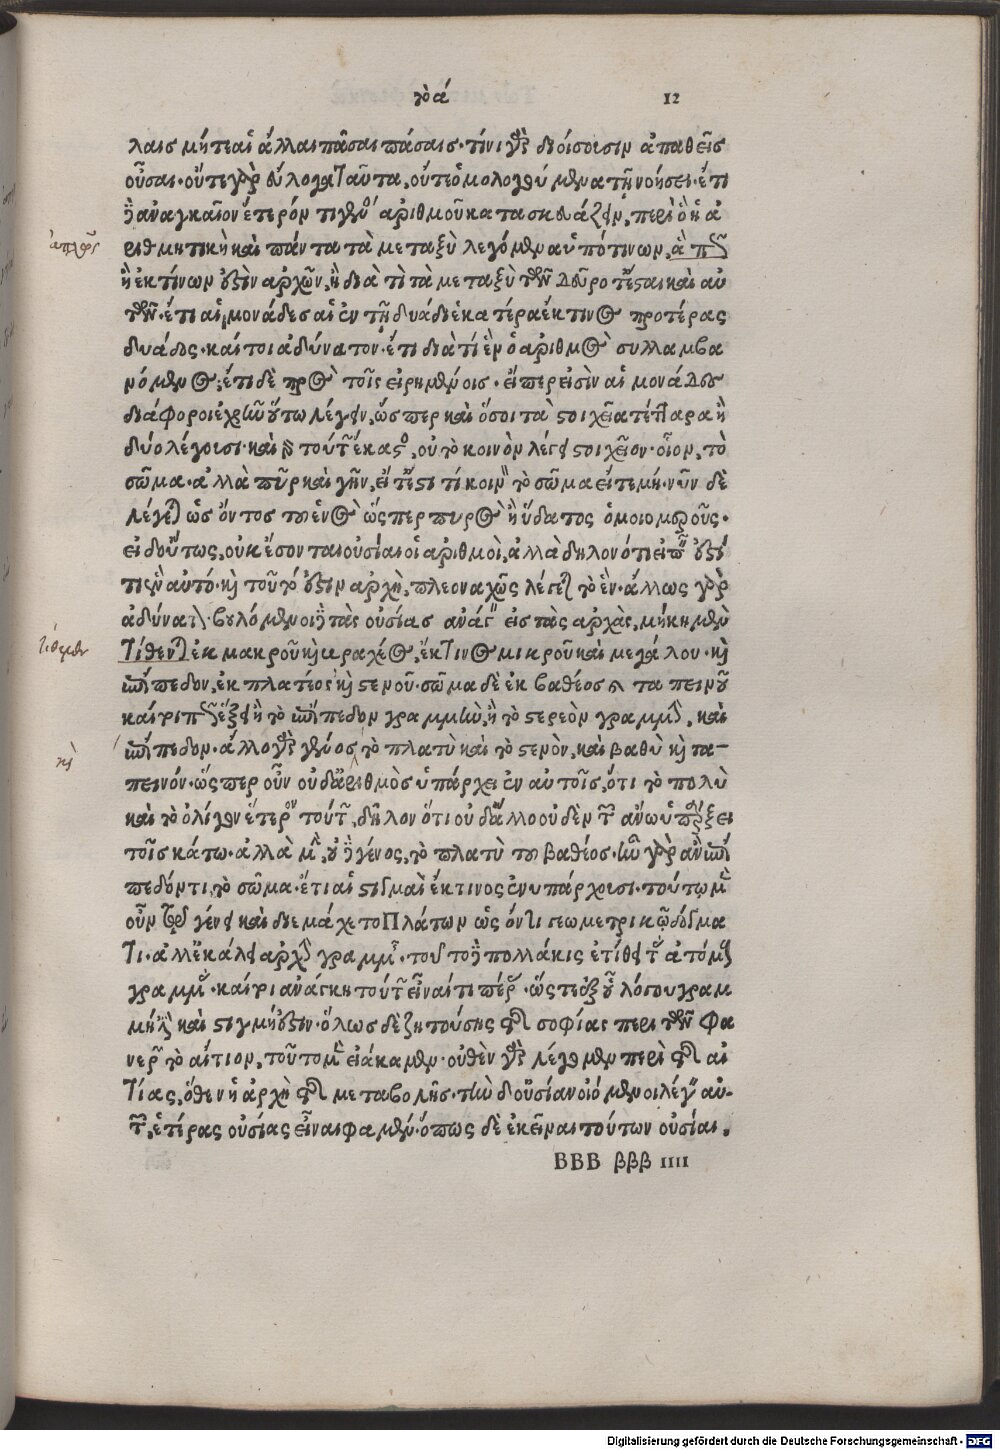 τὸ ά 12
λαις μήτε αἱ ἄλλαι πᾶσαι πάσαις. τίνι γὰρ διοίσουσιν ἀπαθεῖς
οὖσαι. οὔτε γὰρ εὔλογα ταῦτα, οὔτε ὁμολογούμενα τῇ νοήσει. ἔτι
δ' ἀναγκαῖον ἕτερόν τι γένος ἀριθμοῦ κατασκευάζειν, περὶ ὃ ἡ ἀ
ριθμητικὴ καὶ πάντα τὰ μεταξὺ λεγόμενα ὑπό τινων, ἃ πῶς
ἢ ἐκ τίνων ἐστὶν ἀρχῶν, ἢ διὰ τί τὰ μεταξὺ τῶν δεῦρό τ' ἔσται καὶ αὐ
τῶν. ἔτι αἱ μονάδες αἱ ἐν τῇ δυάδι ἑκατέρα ἐκ τινος προτέρας
δυάδος. καίτοι ἀδύνατον. ἔτι διὰ τί ἓν ὁ ἀριθμὸς συλλαμβα
νόμενος. ἔτι δὲ πρὸς τοῖς εἰρημένοις. εἴπερ εἰσὶν αἱ μονάδες
διάφοροι ἐχρῆν οὕτω λέγειν, ὥσπερ καὶ ὅσοι τὰ στοιχεῖα τέτταρα ἢ
δύο λέγουσι. καὶ γὰρ τούτων ἕκαστος, οὐ τὸ κοινὸν λέγει στοιχεῖον. οἷον, τὸ
σῶμα. ἀλλὰ πῦρ καὶ γῆν, εἴτ' ἔστι τι κοινὸν τὸ σῶμα εἴτε μή. νῦν δὲ
λέγεται ὡς ὄντος τοῦ ἑνὸς ὥσπερ πυρὸς ἢ ὕδατος ὁμοιομεροῦς.
εἰ δ' οὕτως, οὐκ ἔσονται οὐσίαι οἱ ἀριθμοὶ, ἀλλὰ δῆλον ὅτι εἴπερ ἐστί
τι ἓν αὐτό. καὶ τοῦτό ἐστιν ἀρχὴ, πλεοναχῶς λέγεται τὸ ἕν. ἄλλως γὰρ
ἀδύνατον. βουλόμενοι δὲ τὰς οὐσίας ἀνάγειν εἰς τὰς ἀρχὰς, μήκη μὲν
τίθενται ἐκ μακροῦ καὶ βραχέος, ἔκ τινος μικροῦ καὶ μεγάλου. καὶ
ἐπίπεδον, ἐκ πλατέος καὶ στενοῦ. σῶμα δὲ ἐκ βαθέος καὶ ταπεινοῦ
καίτοι πῶς ἕξει ἢ τὸ ἐπίπεδον γραμμὴν, ἢ τὸ στερεὸν γραμμὴν, καὶ
ἐπίπεδον. ἄλλο γὰρ γένος τὸ πλατὺ καὶ τὸ στενὸν, καὶ βαθὺ καὶ τα-
πεινόν. ὥσπερ οὖν οὐδ' ἀριθμὸς ὑπάρχει ἐν αὐτοῖς, ὅτι τὸ πολὺ
καὶ τὸ ὀλίγον ἕτερον τούτων, δῆλον ὅτι οὐδ' ἄλλο οὐδὲν τῶν ἄνω ὑπάρξει
τοῖς κάτω. ἀλλὰ μὴν, οὐδὲ γένος, τὸ πλατὺ τοῦ βαθέος. ἦν γὰρ ἂν ἐπί
πεδόν τι, τὸ σῶμα. ἔτι αἱ στιγμαὶ ἐκ τίνος ἐνυπάρχουσι. τούτῳ μὲν
οὖν τῷ γένει καὶ διεμάχετο Πλάτων ὡς ὄντι γεωμετρικῷ δόγμα
τι. ἀλλ' ἐκάλει ἀρχὴν γραμμῆς. τοῦτο δὲ πολλάκις ἐτίθει τὰς ἀτόμους
γραμμάς. καίτοι ἀνάγκη τούτων εἶναί τι πέρας. ὥστ' ἐξ οὗ λόγου γραμ
μή ἐστι καὶ στιγμή ἐστιν. ὅλως δὲ ζητούσης τῆς σοφίας περὶ τῶν φα
νερῶν τὸ αἴτιον, τοῦτο μὲν εἰάκαμεν. οὐθὲν γὰρ λέγομεν περὶ τῆς αἰ
τίας, ὅθεν ἡ ἀρχὴ τῆς μεταβολῆς. τὴν δ' οὐσίαν οἰόμενοι λέγειν αὐ-
τῶν, ἑτέρας οὐσίας εἶναι φαμέν. ὅπως δὲ ἐκεῖναι τούτων οὐσίαι,
BBB βββ IIII
ἁπλῶς
τίθεμεν
καὶ
Digitalisierung gefördert durch die Deutsche Forschungsgemeinschaft - DFG